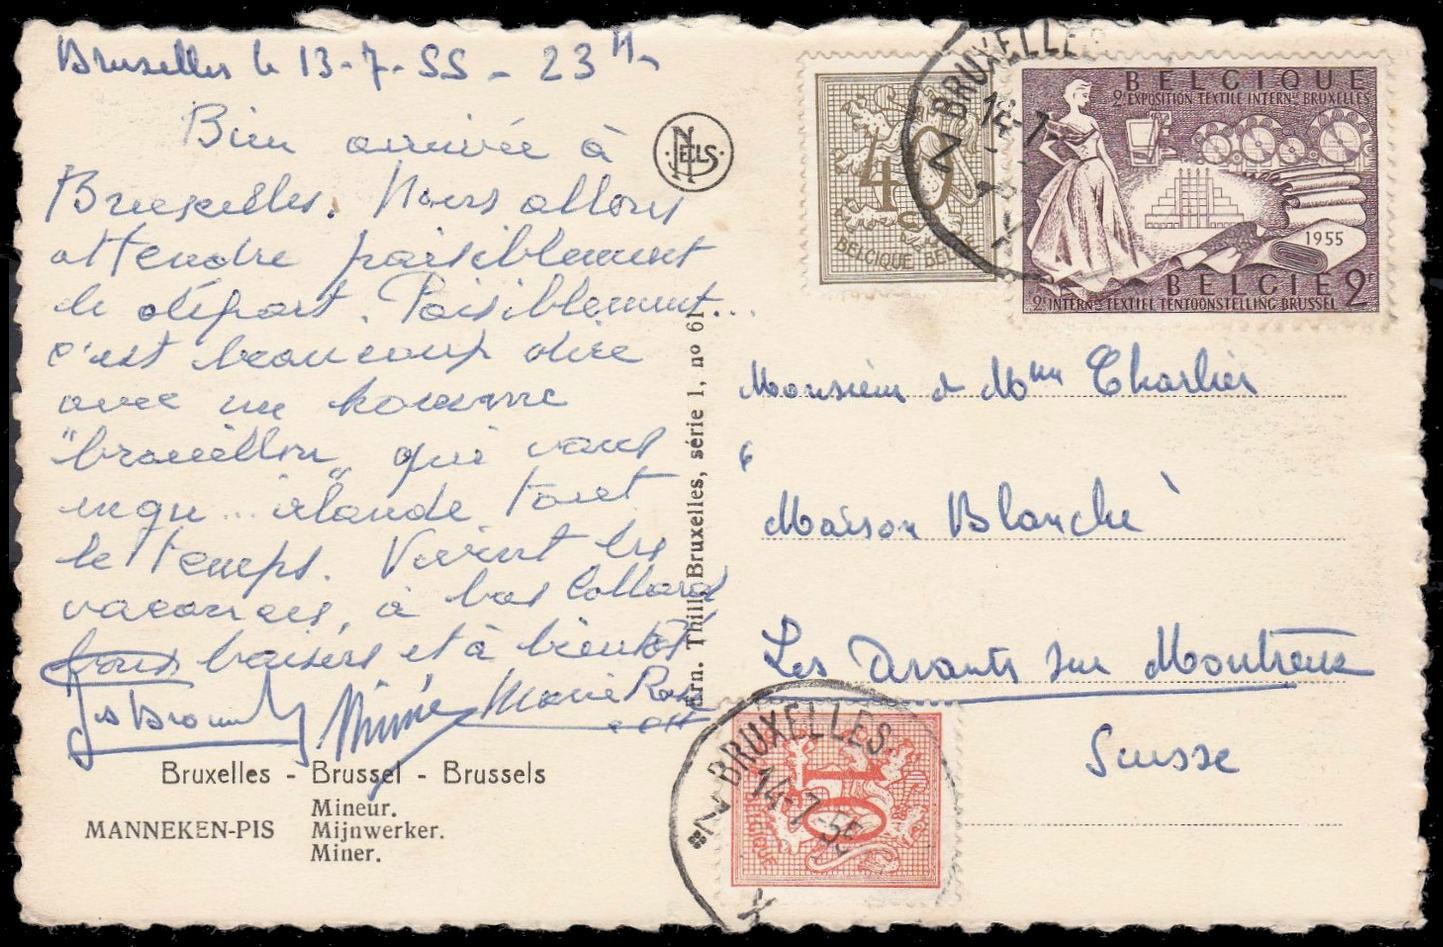 Bruxelles le 13-7-55 - 23 H
Bien arrivée à
Bruxelles. Nous allons
attendre paisiblement
le départ. Paisiblement...
c'est beaucoup dire
avec un homme
"brouillon" qui vous
engu... irlande tout
le temps. Vivent les
vacances, à bas Collard
baisers et à bientôt
Mimie Marie Rose
Bruxelles - Brussel - Brussels
MANNEKEN-PIS
Mineur.
Mijnwerker.
Miner.
NELS
Ern. Thill, Bruxelles, série 1, no 61
40
BELGIQUE BEL
BELGIQUE
2e EXPOSITION TEXTILE INTERNle BRUXELLES
1955
BELGIE 2F
2e INTERNle TEXTIEL TENTOONSTELLING BRUSSEL
BRUXELLES
14-7
Monsieur & Mme Charlier
Maison Blanche
Les Avants sur Montreux
Suisse
BRUXELLES
14-7-55
10
BELGIQUE